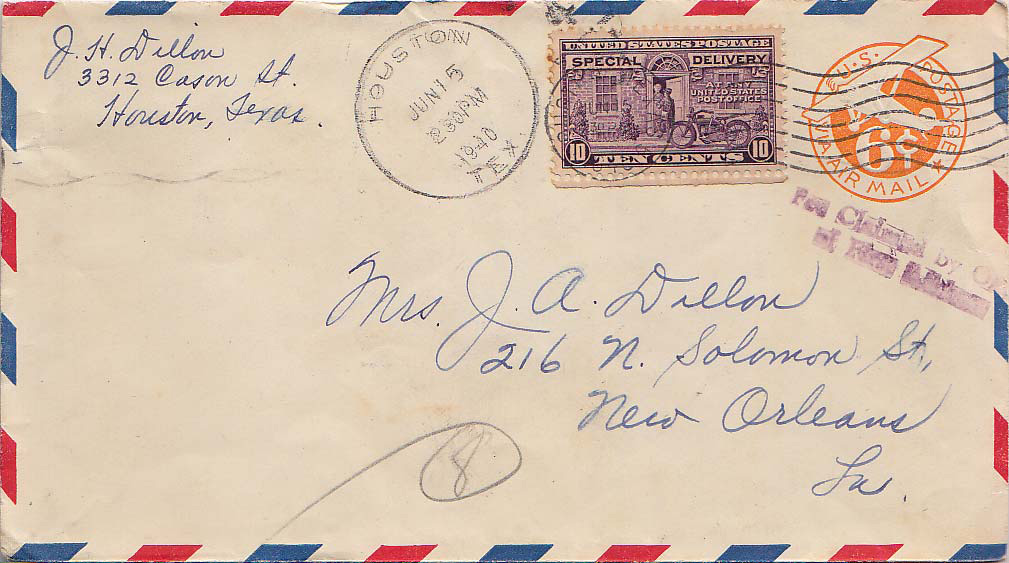 J. H. Dillon
3312 Cason St.
Houston, Texas.
HOUSTON
JUN 15
230PM
1940
TEX.
UNITED STATES POSTAGE
SPECIAL DELIVERY
UNITED STATES
POST OFFICE
10 TEN CENTS 10
U.S. POSTAGE
6¢
VIA AIR MAIL
Fee Claimed by
of First Address
Mrs. J. A. Dillon
216 N. Solomon St.,
New Orleans
La.
8